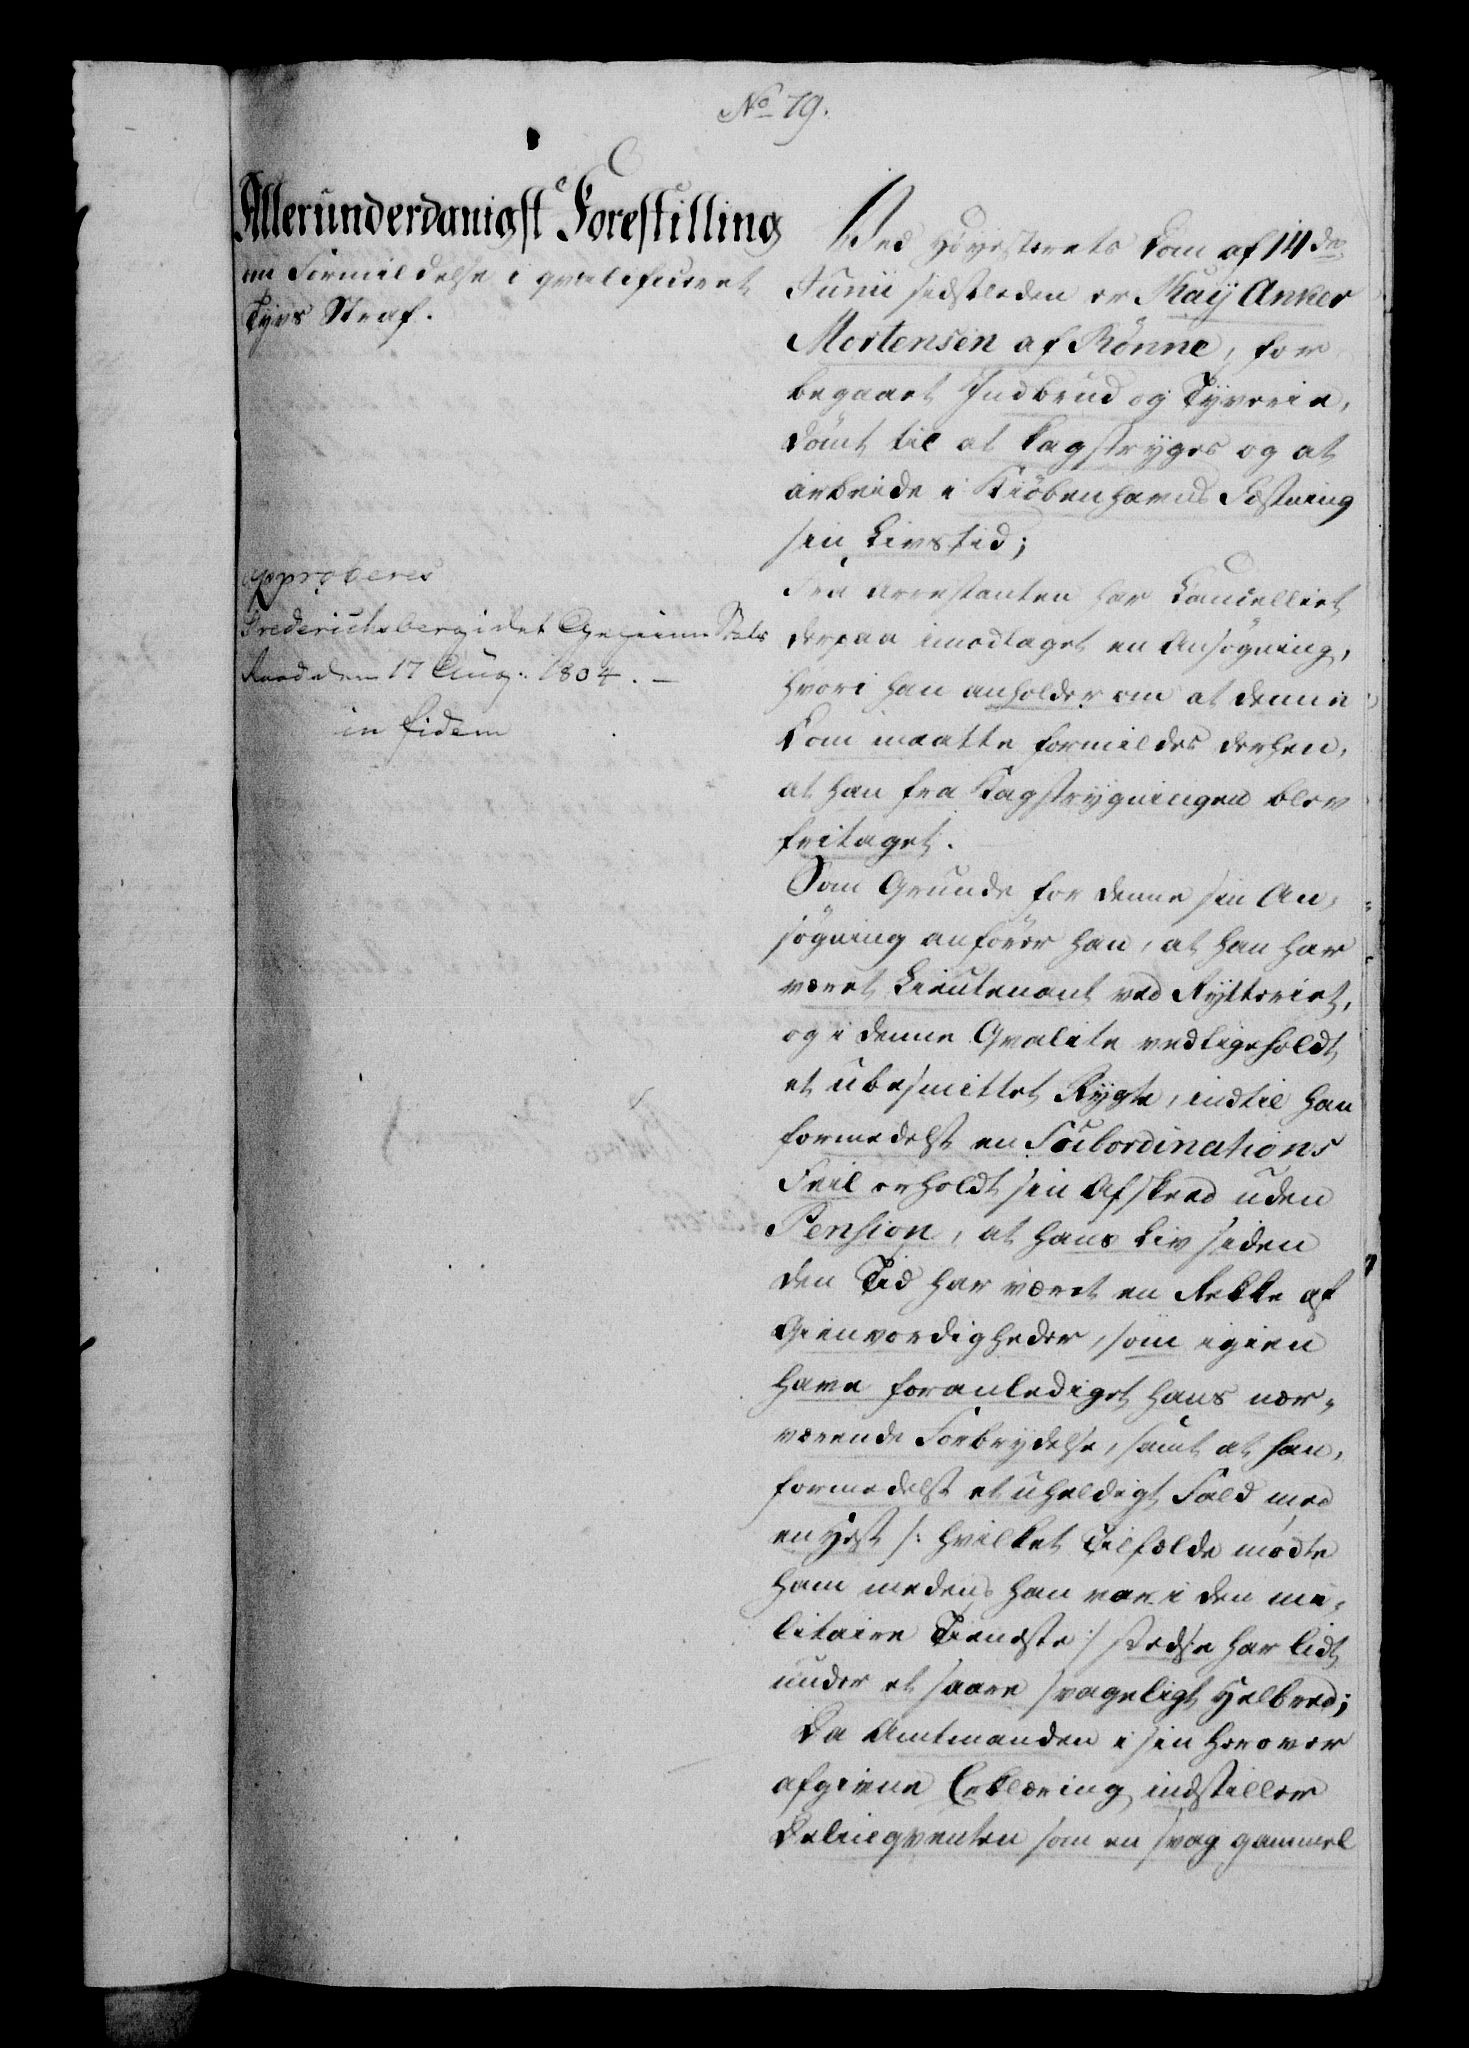 No 79.
Allerunderdanigst Forestilling
om Formildelse i qvalificeret
Tyvs Straf.
approberes
Frederichsberg i det Geheime Stats
Raad den 17 Aug. 1804. —
in fidem
Ved Höyesterets Dom af 14de
Junii sidstleden er Kaÿ Anker
Mortensen af Rönne, for
begaaet Indbrud og Tÿverie,
dömt til at kagstrÿges og at
arbeide i Kiöbenhavns Fæstning
sin Livstid;
Fra Arrestanten har Cancelliet
derpaa imodtaget en Ansögning,
hvori han anholder om at denne
Dom maatte formildes derhen,
at han fra Kagstrÿgningen blev
fritaget.
Som Grunde for denne sin An-
sögning anförer han, at han har
været Lieutenant ved Rÿtteriet,
og i denne Qvalite vedligeholdt
et ubesmittet Rÿgte, indtil han
formedelst en Subordinations
Feil erholdt sin Afskeed uden
Pension, at hans Liv siden
den Tid har været en Rekke af
Gienvordigheder, som igien
have foranlediget hans nær-
værende Forbrydelse, samt at han,
formedelst et uheldigt Fald med
en Hest /: hvilket Tilfælde mödte
ham medens han var i den mi-
litaire Tieneste :/ stedse har lidt
under et saare svageligt Helbred;
Da Amtmanden i sin herover
afgivne Erklæring indstiller
Delinqventen som en svag gammel